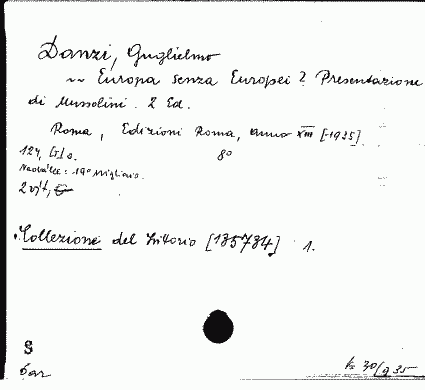 Danzi, Guglielmo
~~ Europa senza Europei? Presentazione
di Mussolini. 2 Ed.
Roma, Edizioni Roma, anno XIII [1935]
124, [1] o. 8°
19° Migliaio.
Collezione del Littorio [135784] 1.
S